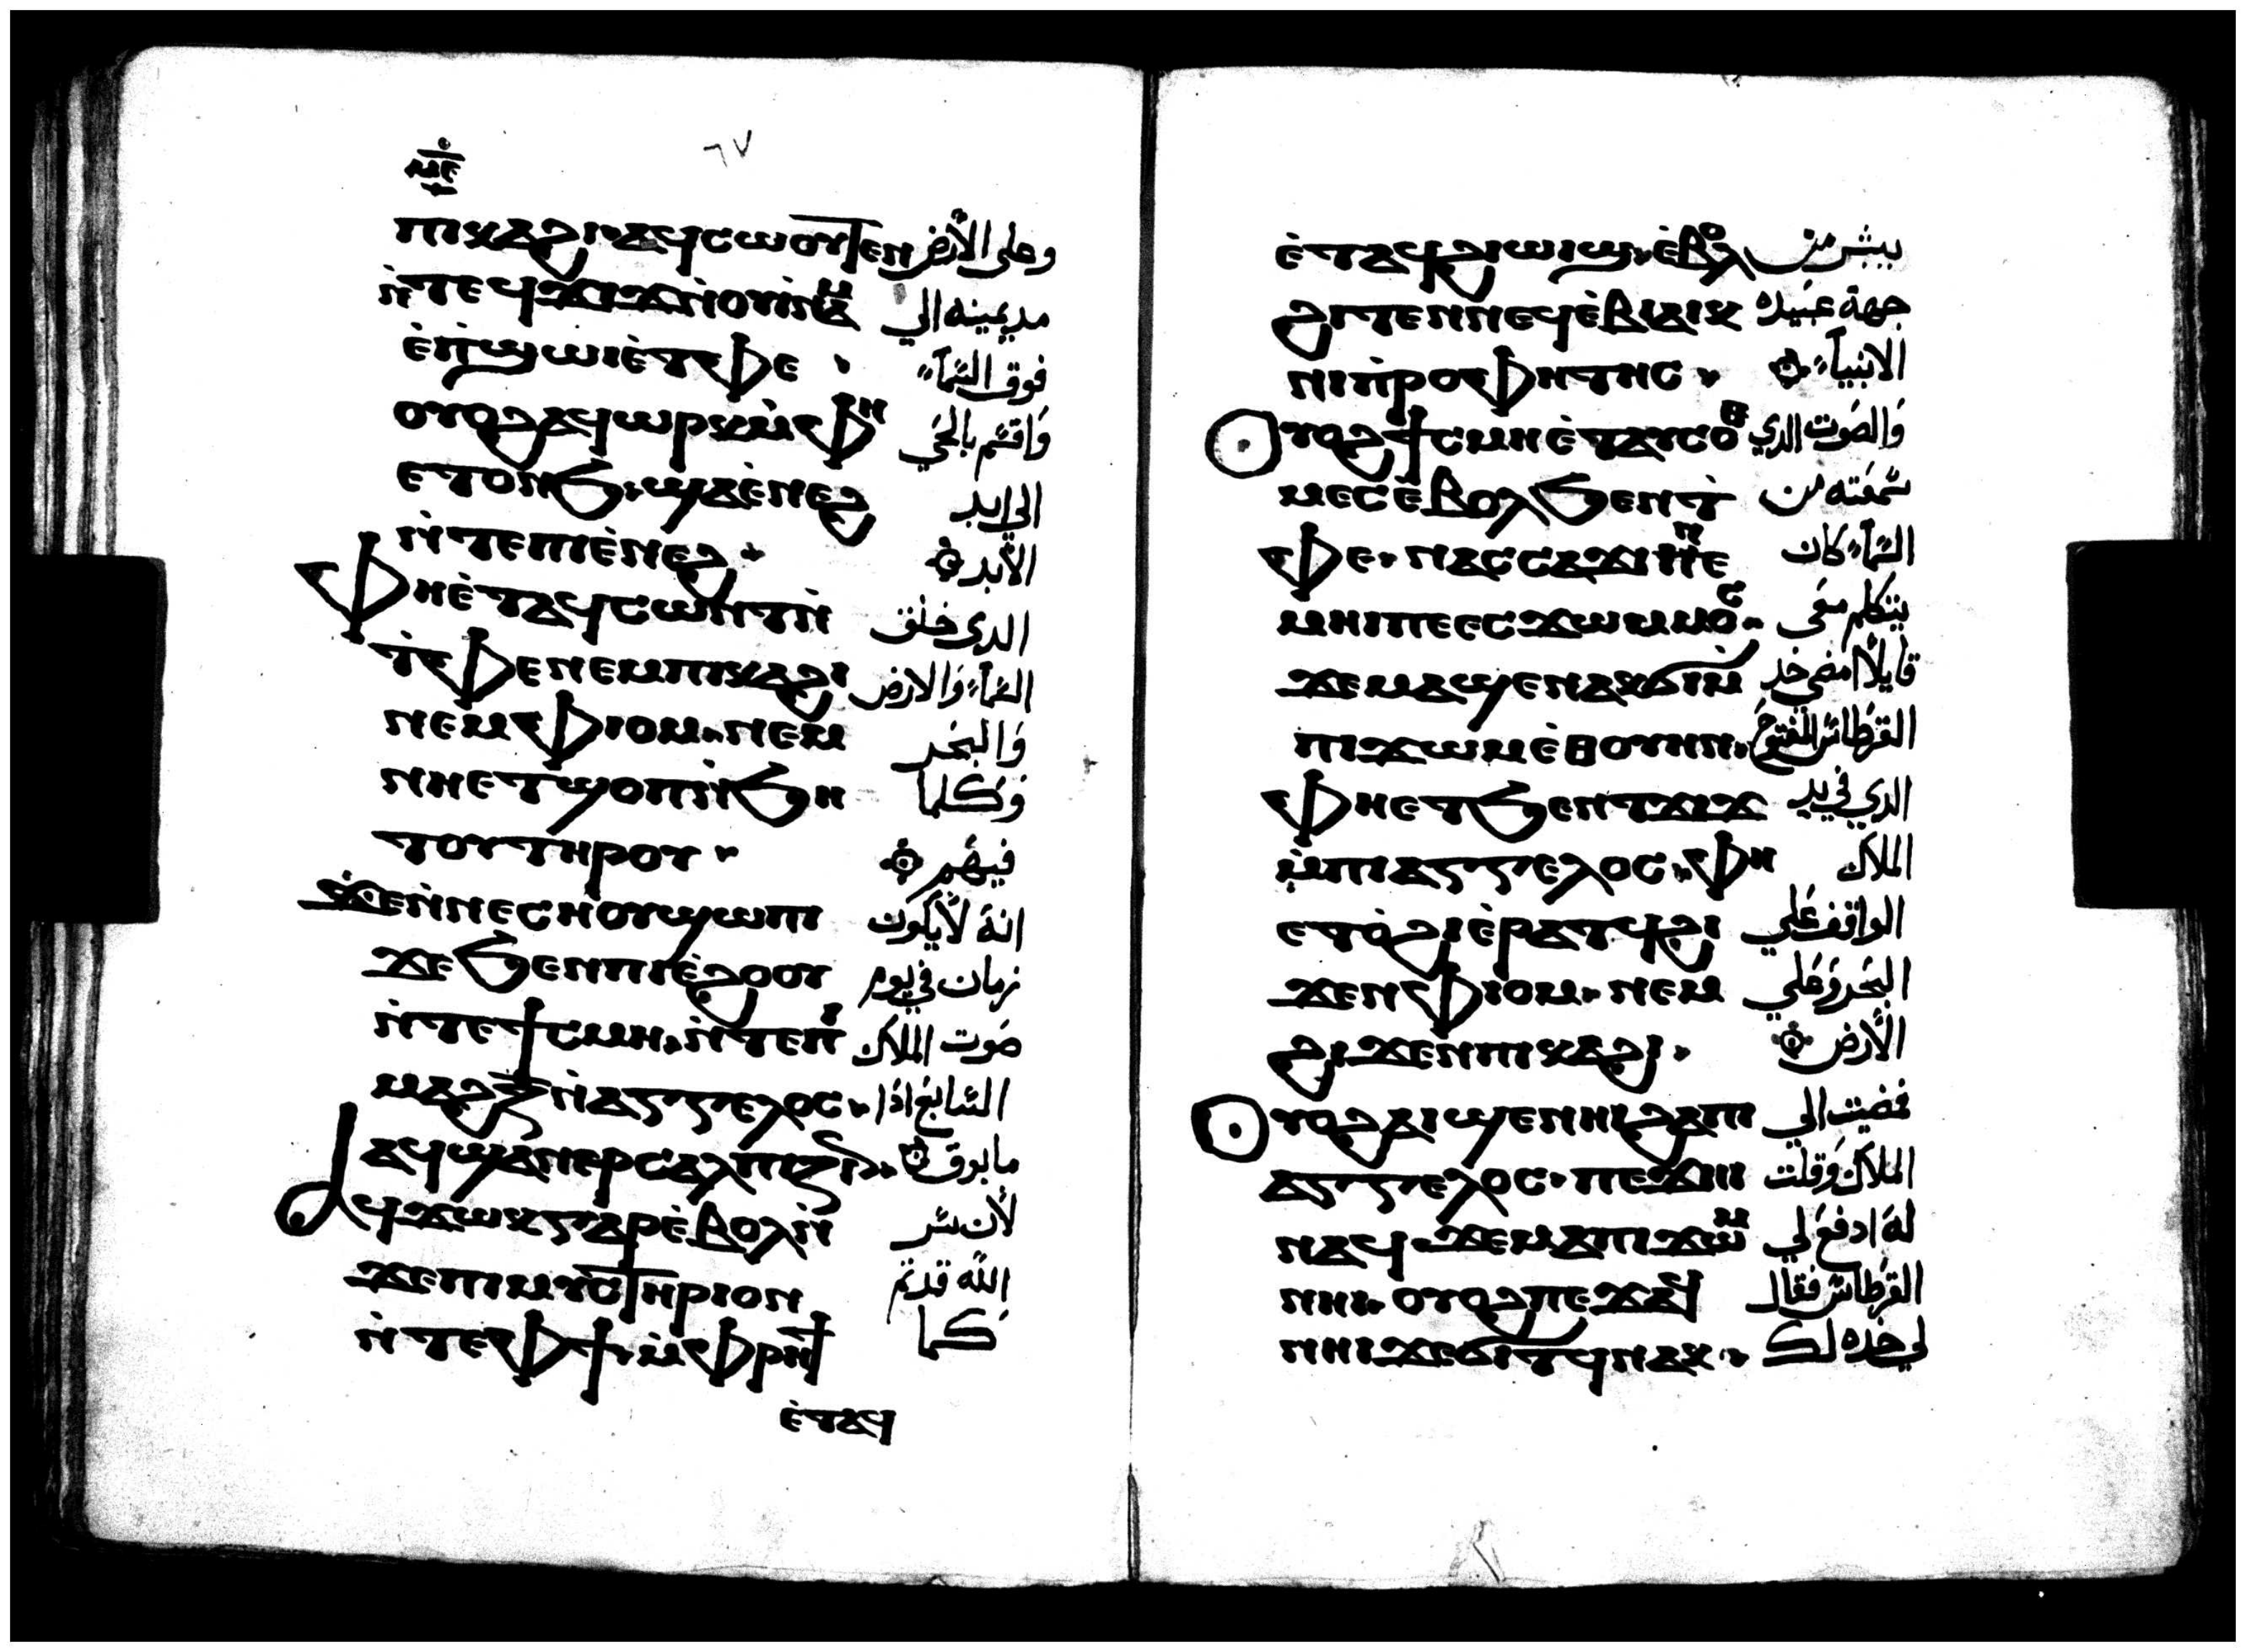 ⲙ̅ⲉ̅ ٦٧
ⲡⲓⲕⲁϩⲓ ⲁϥⲥⲱⲟⲩⲧⲉⲛ وعلى الأرض
ⲛ̀ⲧⲉϥϫⲓϫ ⲛ̀ⲟⲩⲓ̀ⲛⲁⲙ مد يمينه الي
ⲉ̀ⲡ̀ϣⲱⲓ ⲉ̀ⲧ̀ⲫⲉ فوق السمآء
ⲟⲩⲟϩ ⲁϥⲱⲣⲕ ⲙ̀ⲫⲏ وَاقسم بالحَي
ⲉⲧⲟⲛϧ ϣⲁ ⲉ̀ⲛⲉϩ الي ابد
ⲛ̀ⲧⲉ ⲡⲓⲉ̀ⲛⲉϩ الأبد
ⲫⲏ ⲉ̀ⲧⲁϥⲥⲱⲛⲧ ⲛ̀ الدي خلق
ⲧ̀ⲫⲉ ⲛⲉⲙ ⲡⲓⲕⲁϩⲓ السمآء وَالارض
ⲛⲉⲙ ⲫⲓⲟⲙ ⲛⲉⲙ وَالبحَر
ⲛⲏ ⲉⲧϣⲟⲡ ⲛ̀ϧⲏ وَكلما
ⲧⲟⲩ ⲧⲏⲣⲟⲩ فيهم
ϫⲉ ⲛ̀ⲛⲉ ⲥⲏⲟⲩ ϣⲱⲡⲓ انهَ لا يكون
ϫⲉ ϧⲉⲛ ⲡⲓⲉ̀ϩⲟⲟⲩ زمان في يوم
ⲛ̀ⲧⲉ ϯⲥⲙⲏ ⲛ̀ⲧⲉ ⲡⲓ صَوت الملاك
ⲙⲁϩ ⲍ̅ ⲛ̀ⲁⲅⲅⲉⲗⲟⲥ السابعَ اذا
ⲁϥϣⲁⲛⲉⲣⲥⲁⲗⲡⲓⲍⲓⲛ ما بوق
ⲁϥϫⲱⲕ ⲅⲁⲣ ⲉ̀ⲃⲟⲗ ⲛ̀ لأن سر
ϫⲉ ⲡⲓⲙⲩⲥⲧⲏⲣⲓⲟⲛ الله قد تم
ⲛ̀ⲧⲉ ⲫϯ ⲙ̀ⲫⲣⲏϯ كما
ⲉ̀ⲧⲁϥ
ⲉ̀ⲧⲁϥϩⲓⲱⲓϣ ⲉ̀ⲃⲟⲗ يبشر من
ϩⲓⲧⲉⲛ ⲛⲉϥⲉ̀ⲃⲓⲁⲓⲕ جهة عَبيده
ⲛⲓⲡ̀ⲣⲟⲫⲏⲧⲏⲥ الانبيآء
ⲟⲩⲟϩ ϯⲥⲙⲏ ⲉ̀ⲧⲁⲩⲥⲟⲑ وَالصَوت الدي
ⲙⲉⲥ ⲉ̀ⲃⲟⲗ ϧⲉⲛ ⲧ̀ سمعَته من
ⲫⲉ ⲛⲁⲥⲥⲁϫⲓ ⲛⲉ السمآء كان
ⲙⲏⲓ ⲡⲉ ⲉⲥϫⲱ ⲙ̀ⲙⲟⲥ يتكلم معَي
ϫⲉ ⲙⲁϣⲉⲛⲁⲕ ϭⲓ ⲙ̀ قايلاً امضي خد
ⲡⲓϫⲱⲙ ⲉ̀ⲑⲟⲩⲏⲛ القرطاس المفتوح
ⲫⲏ ⲉⲧϧⲉⲛ ⲧϫⲓϫ الدي في يد
ⲙ̀ⲡⲓⲁⲅⲅⲉⲗⲟⲥ ⲫⲏ الملاك
ⲉⲧⲟ̀ϩⲓ ⲉ̀ⲣⲁⲧϥ ϩⲓ الواقف عَلي
ϫⲉⲛ ⲫⲓⲟⲙ ⲛⲉⲙ البَحر وَعَلي
ϩⲓϫⲉⲛ ⲡⲓⲕⲁϩⲓ الأرض
ⲟⲩⲟϩ ⲁⲓϣⲉⲛⲏⲓ ϩⲁ ⲡⲓ فمضيت الي
ⲁⲅⲅⲉⲗⲟⲥ ⲡⲉϫⲏⲓ الملاك وَقلت
ⲛⲁϥ ϫⲉ ⲙⲁ ⲡⲓϫⲱⲙ لهَ ادفعَ لي
ⲛⲏⲓ ⲟⲩⲟϩ ⲡⲉϫⲁϥ القرَطاس فقال
ⲛⲏⲓ ϫⲉ ϭⲓⲧϥ ⲛⲁⲕ لي خده لك